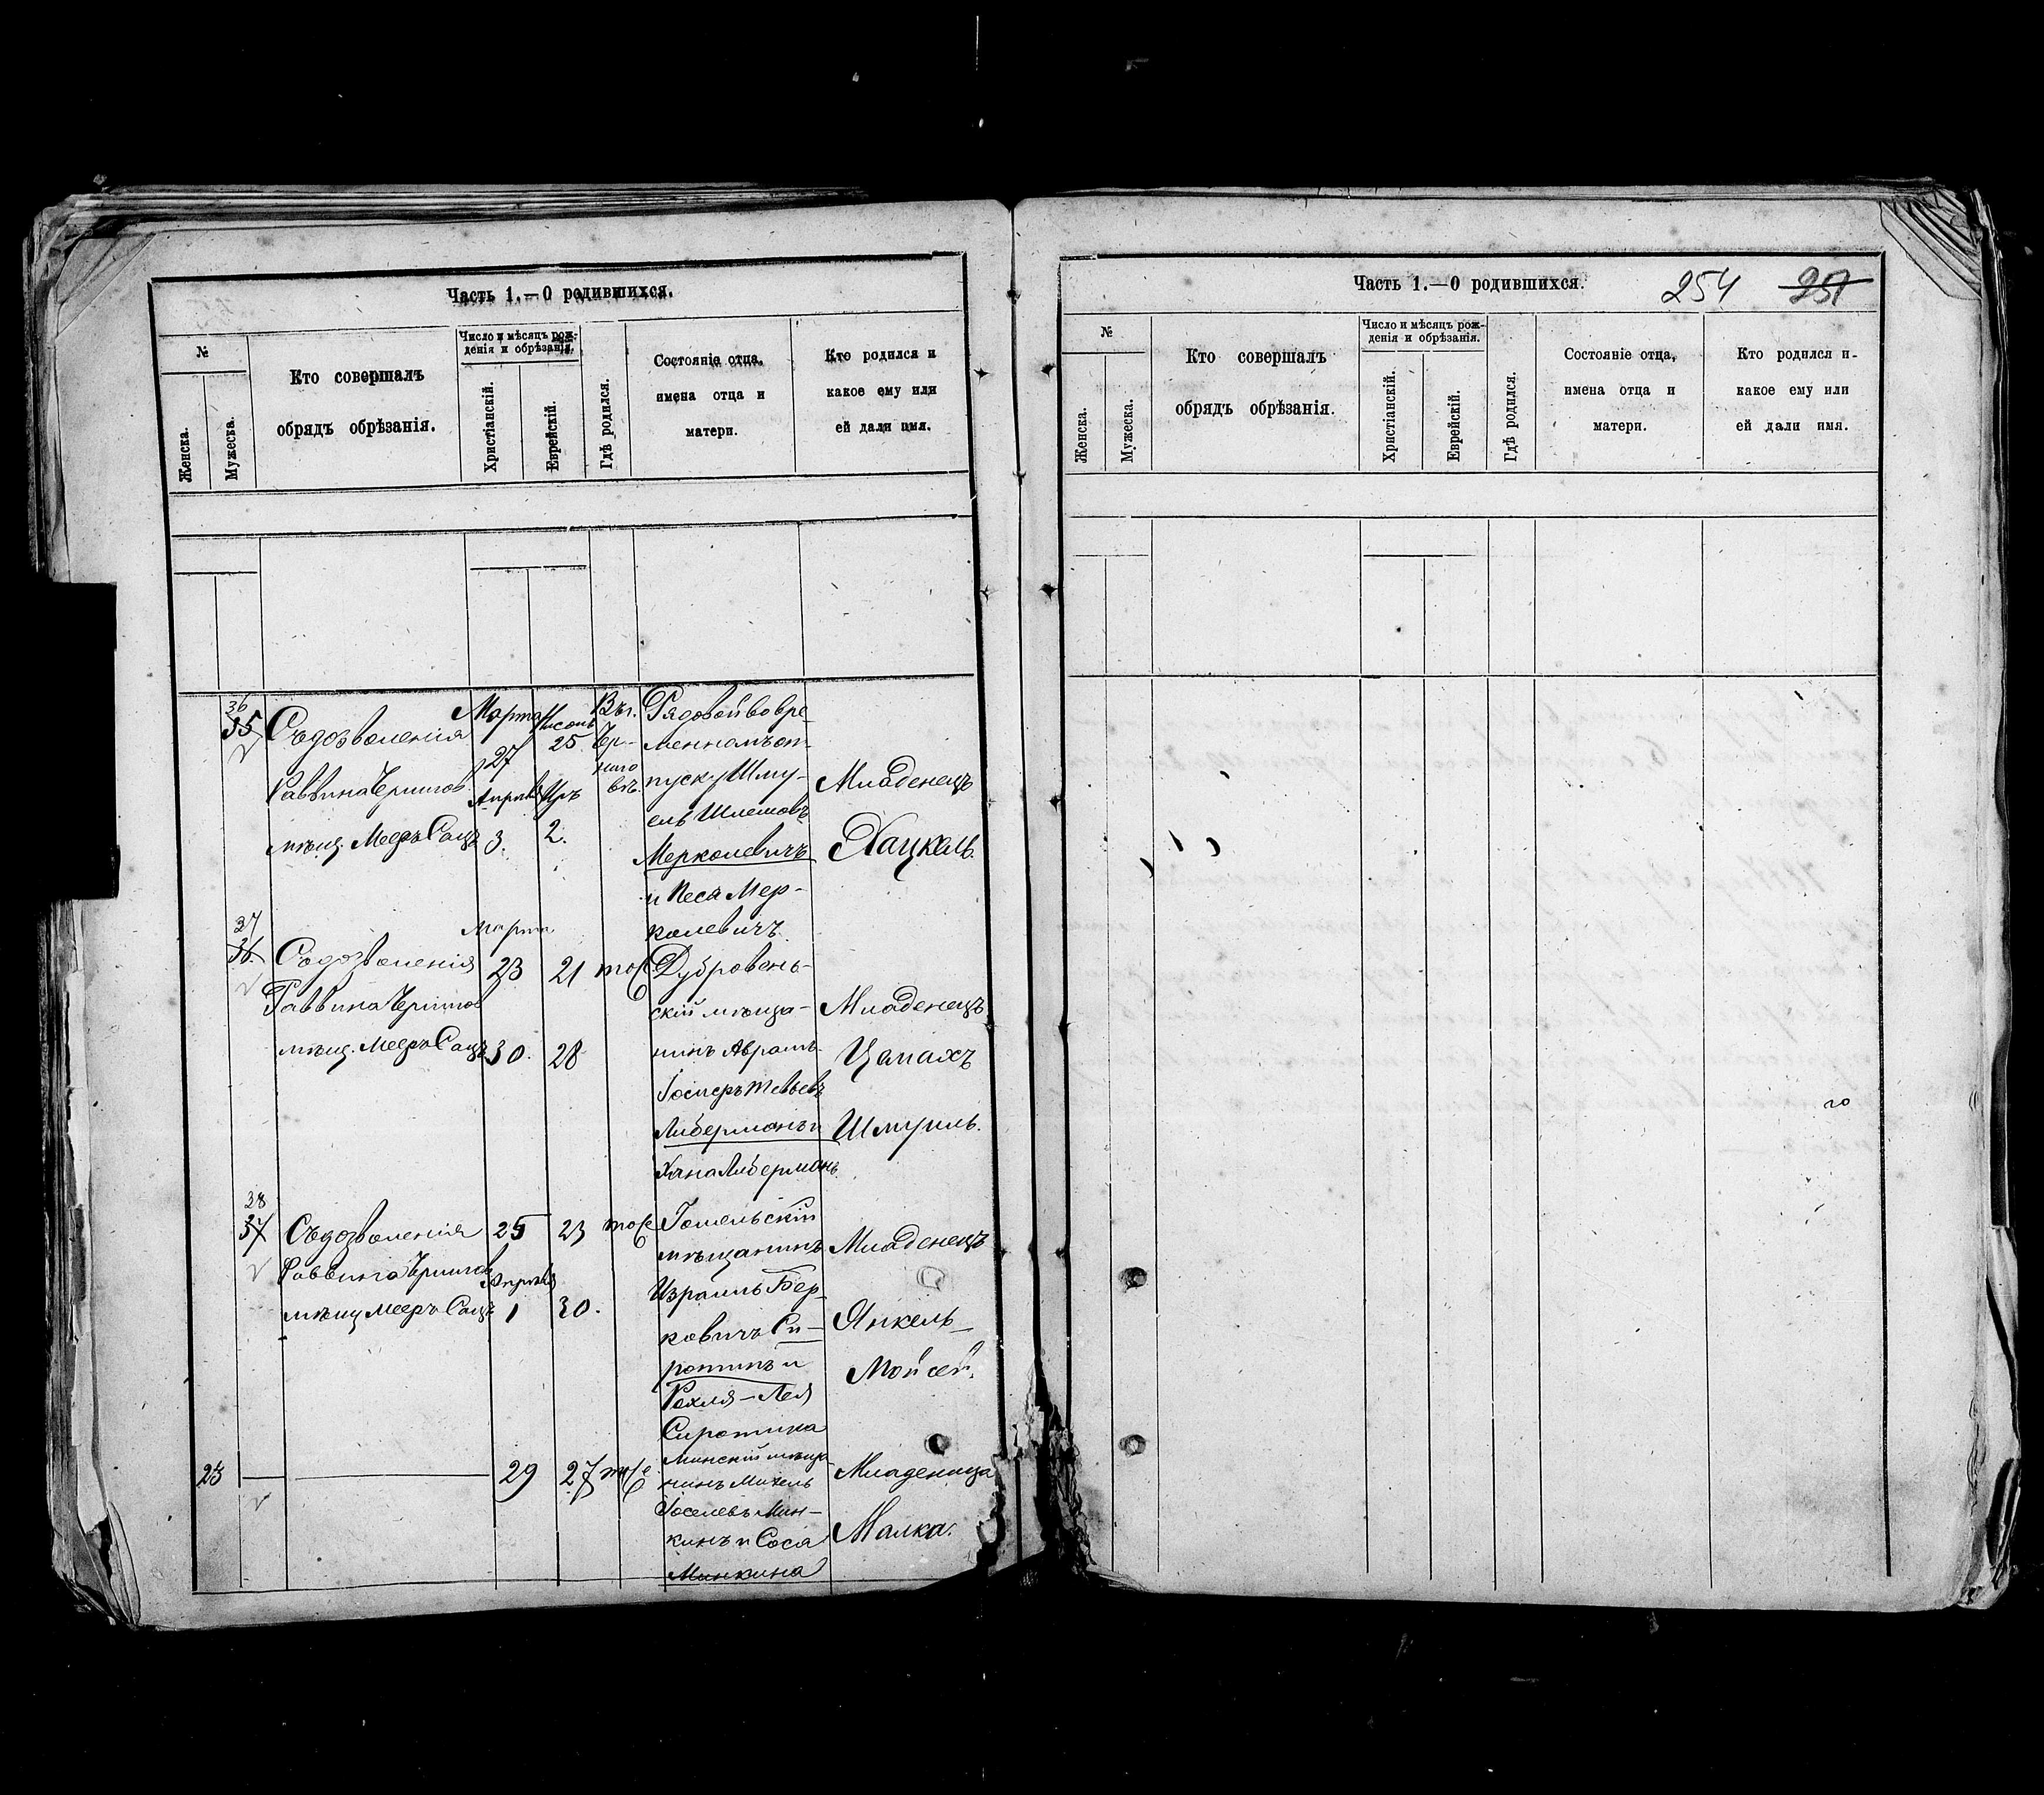 Часть 1.—О родившихся.
№
Женска.
Мужеска.
Кто совершалъ
обрядъ обрѣзанія.
Число и мѣсяцъ рож-
денія и обрѣзанія.
Христіанскій.
Еврейскій.
Гдѣ родился.
Состояніе отца,
имена отца и
матери.
Кто родился и
какое ему или
ей дали имя.
36
35
Съ дозволенія
Раввина Чернигов
мѣщ. Мееръ Сацъ
Марта
27
Апрѣля
3.
Нисанъ
25
Иръ
2.
Въ г.
Чер-
ниго
вѣ.
Рядовой во вре-
менномъ от-
пуску Шму-
ель Шлемовъ
Мерколевичъ
и Песя Мер-
колевичъ.
Младенецъ
Хацкель.
37
36.
Съ дозволенія
Раввина Чернигов
мѣщ. Мееръ Сацъ
Марта
23
30.
21
28
тоже
Дубровен-
скій мѣща-
нинъ Абрамъ
Тевьевъ
Либерманъ и
Хана Либерманъ.
Младенецъ
Цемахъ
Шмуиль.
38
37
Съ дозволенія
Раввина Чернигов
мѣщ Мееръ Сацъ
25
Апрѣля
1
23
30.
тоже
Гомельскій
мѣщанинъ
Израиль Бер-
ковичъ Си-
ротинъ и
Рохля-Лея
Сиротина
Младенецъ
Янкель-
Мойсей.
23
29
27
тоже
Минскій мѣща-
нинъ Михель
Іоселевъ Мин-
кинъ и Сося
Минкина
Младеница
Малка.
Часть 1.—О родившихся.
254
251
№
Женска.
Мужеска.
Кто совершалъ
обрядъ обрѣзанія.
Число и мѣсяцъ рож-
денія и обрѣзанія.
Христіанскій.
Еврейскій.
Гдѣ родился.
Состояніе отца,
имена отца и
матери.
Кто родился и-
какое ему или
ей дали имя.